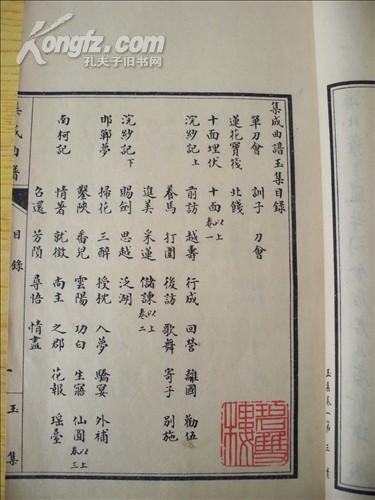 Kongfz.com
孔夫子旧书网
集成曲譜玉集目錄
單刀會 訓子 刀會
蓮花寶筏 北餞
十面埋伏 十面 以上卷一
浣紗記上 前訪 越壽 行成 回營 離國 勸伍
養馬 打圍 後訪 歌舞 寄子 別施
進美 采蓮 儲諫 以上卷二
浣紗記下 賜劍 思越 泛湖
邯鄲夢 掃花 三醉 授枕 入夢 驕宴 外補
鑿陝 番兒 雲陽 功白 生寤 仙圓 以上卷三
南柯記 情著 就徵 尚主 之郡 花報 瑤臺
召還 芳隕 尋悟 情盡
集成曲譜 目錄 一 玉集